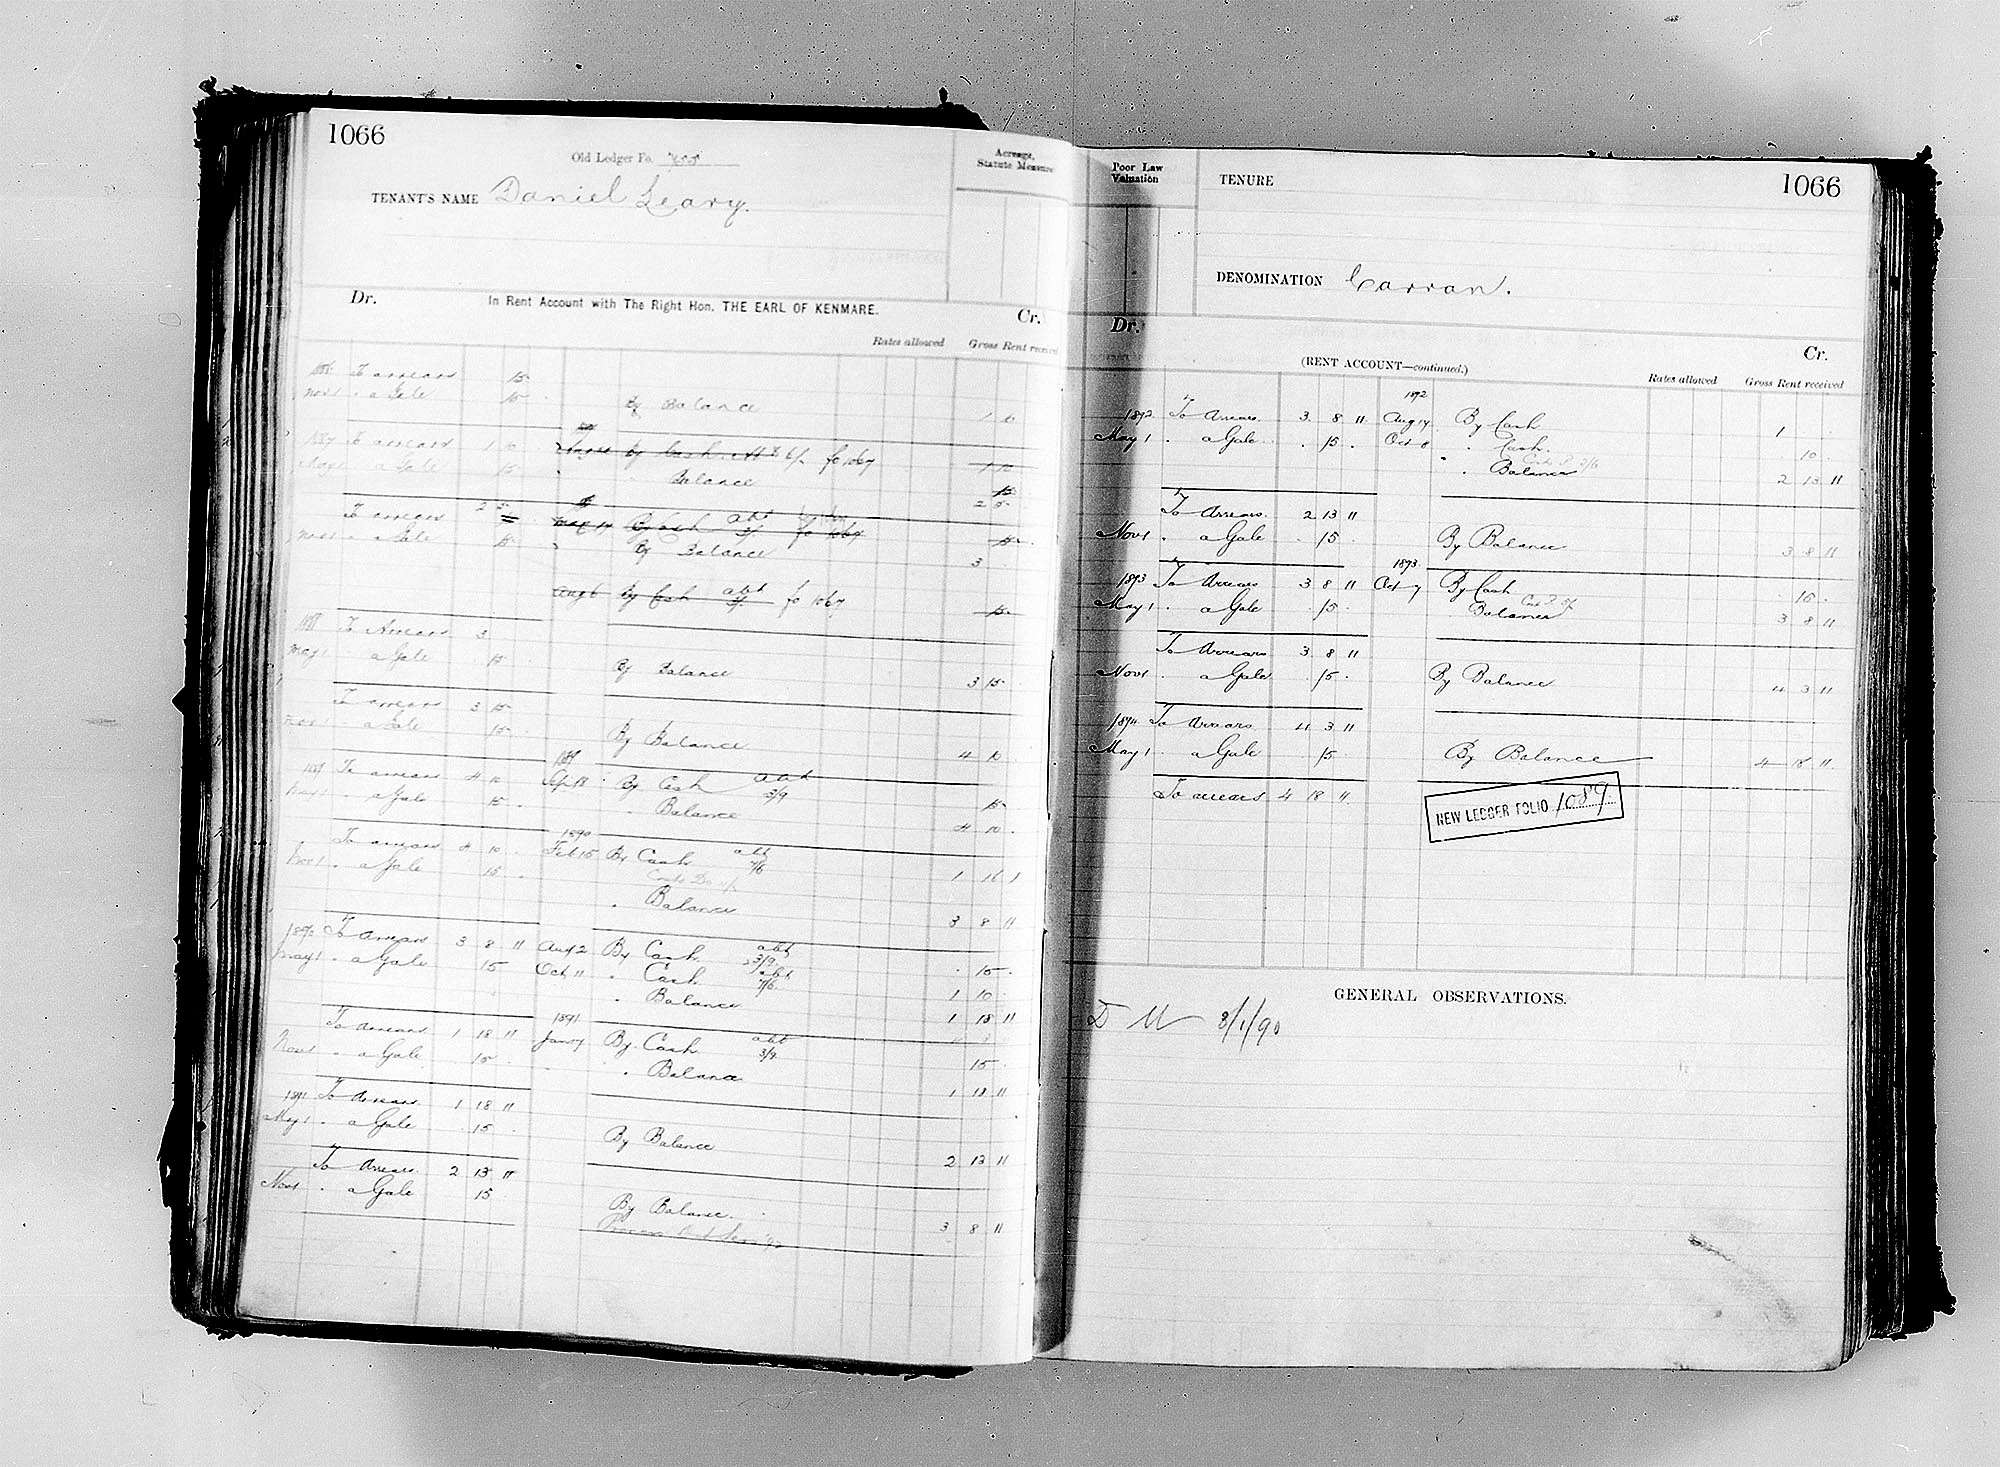 1066
Old Ledger Fo.
TENANT'S NAME Daniel Leary.
Acreage,
Statute Measure
Dr. In Rent Account with The Right Hon. THE EARL OF KENMARE. Cr.
Rates allowed Gross Rent received
To arrears 15
Nov 1 " a Gale 15
By Balance 1 10
1887 To arrears 1 10 By Cash fo 1067 1 10
May 1 " a Gale 15 Balance 15
2 5
To arrears 2 5 By Cash abt fo 1067 15
Nov 1 " a Gale 15 By Balance 3
Aug 6 By Cash abt fo 1067 15
1888 To Arrears 3
May 1 " a Gale 15 By Balance 3 15
To arrears 3 15
Nov 1 " a Gale 15 By Balance 4 10
1889
1889 To arrears 4 10 Sept 18 By Cash abt 3/9 15
May 1 " a Gale 15 " Balance 4 10
1890
To arrears 4 10 Feb 15 By Cash abt 7/6 1 16 1
Nov 1 " a Gale 15
" Balance 3 8 11
1890 To arrears 3 8 11 Aug 2 By Cash abt 3/9 15
May 1 " a Gale 15 Oct 11 " Cash abt 7/6 1 10
" Balance 1 18 11
1891
To Arrears 1 18 11 Jany By Cash abt 3/9 15
Nov 1 " a Gale 15 " Balance 1 18 11
1891 To Arrears 1 18 11
May 1 " a Gale 15 By Balance 2 13 11
To Arrears 2 13 11
Nov 1 " a Gale 15 By Balance 3 8 11
Poor Law
Valuation
TENURE 1066
DENOMINATION Carran.
Dr. Cr.
(RENT ACCOUNT—continued.)
Rates allowed Gross Rent received
1892
1892 To Arrears 3 8 11 Aug 17 By Cash 1
May 1 " a Gale 15 Oct 8 " Cash 10
" Balance 2 13 11
To Arrears 2 13 11
Nov 1 " a Gale 15 By Balance 3 8 11
1893
1893 To Arrears 3 8 11 Oct 7 By Cash 15
May 1 " a Gale 15 Balance 3 8 11
To Arrears 3 8 11
Nov 1 " a Gale 15 By Balance 4 3 11
1894 To Arrears 4 3 11
May 1 " a Gale 15 By Balance 4 18 11
To arrears 4 18 11
NEW LEDGER FOLIO 1089
GENERAL OBSERVATIONS.
D M 8/1/90